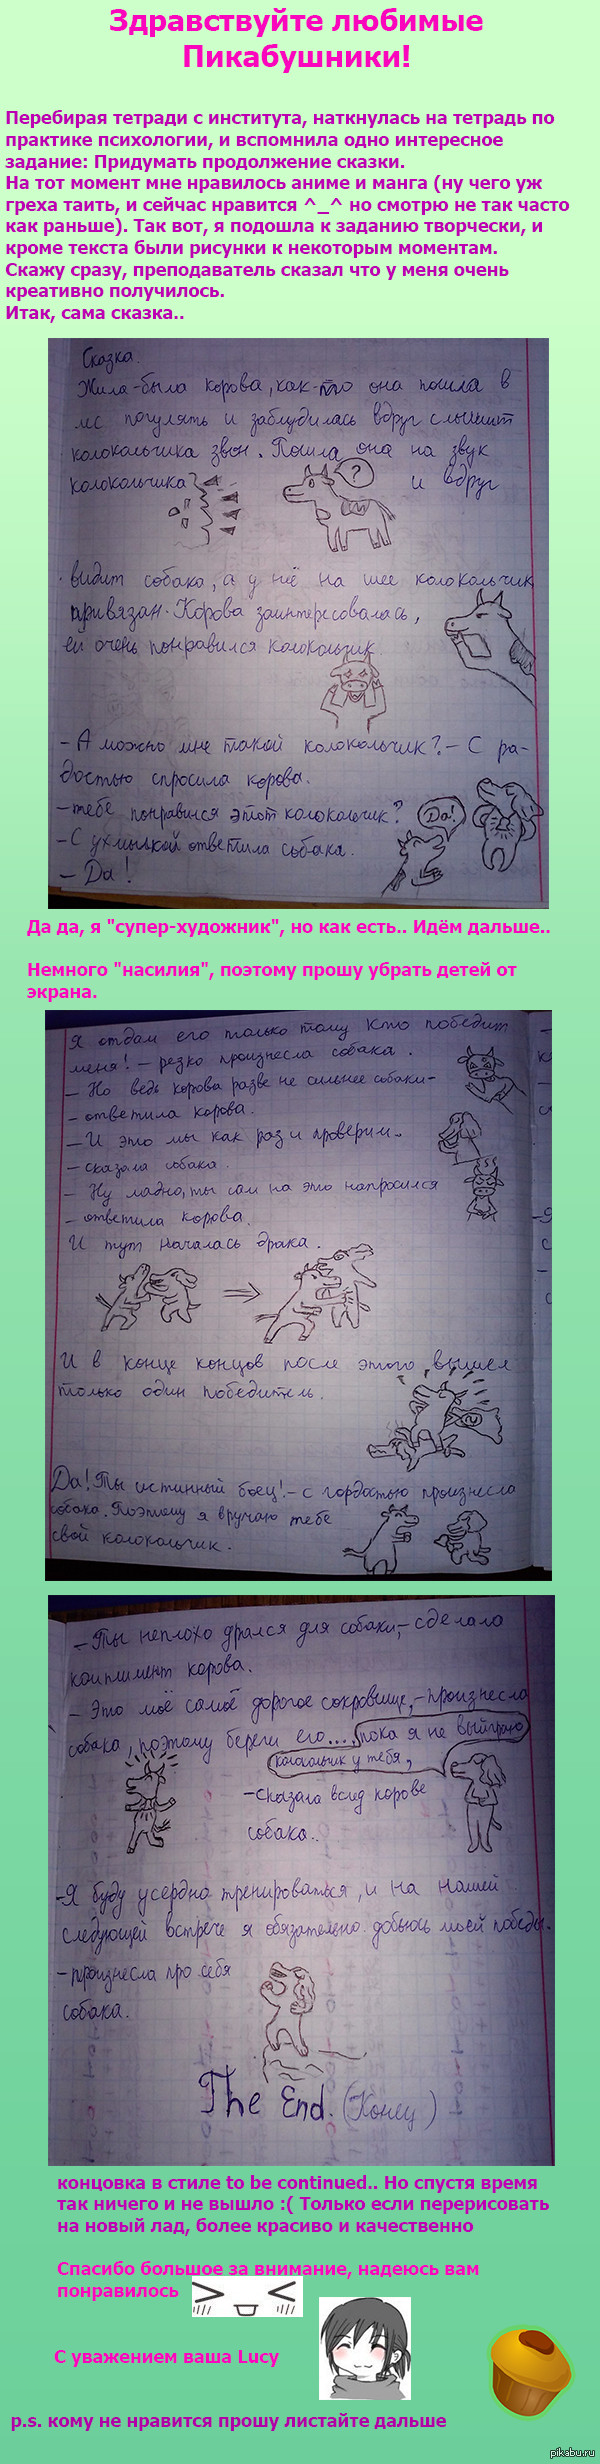 Здравствуйте любимые
Пикабушники!
Перебирая тетради с института, наткнулась на тетрадь по
практике психологии, и вспомнила одно интересное
задание: Придумать продолжение сказки.
На тот момент мне нравилось аниме и манга (ну чего уж
греха таить, и сейчас нравится ^_^ но смотрю не так часто
как раньше). Так вот, я подошла к заданию творчески, и
кроме текста были рисунки к некоторым моментам.
Скажу сразу, преподаватель сказал что у меня очень
креативно получилось.
Итак, сама сказка..
Сказка.
Жила-была корова, как-то она пошла в
лес погулять и заблудилась вдруг слышит
колокольчика звон. Пошла она на звук
колокольчика ? и вдруг
видит собака, а у неё на шее колокольчик
привязан. Корова заинтересовалась,
ей очень понравился колокольчик.
- А можно мне такой колокольчик? - С ра-
достью спросила корова.
- тебе понравился этот колокольчик?
- С ухмылкой ответила собака.
Да!
- Да!
Да да, я "супер-художник", но как есть.. Идём дальше..
Немного "насилия", поэтому прошу убрать детей от
экрана.
Я отдам его только тому кто победит
меня! - резко произнесла собака.
- Но ведь корова разве не сильнее собаки-
- ответила корова.
- И это мы как раз и проверим.
- сказала собака.
- Ну ладно, ты сам на это напросился
- ответила корова.
И тут началась драка.
И в конце концов после этого вышел
только один победитель.
Да! Ты истинный боец! - с гордостью произнесла
собака. Поэтому я вручаю тебе
свой колокольчик.
- Ты неплохо дрался для собаки, - сделала
комплимент корова.
- Это моё самоё дорогое сокровище, - произнесла
собака, поэтому береги его.... пока я не выйграю
колокольчик у тебя,
- сказала вслед корове
собака..
- Я буду усердно тренироваться, и на нашей
следующей встрече я обязателено добьюсь моей победы.
- произнесла про себя
собака.
The End. (Конец)
концовка в стиле to be continued.. Но спустя время
так ничего и не вышло :( Только если перерисовать
на новый лад, более красиво и качественно
Спасибо большое за внимание, надеюсь вам
понравилось
С уважением ваша Lucy
p.s. кому не нравится прошу листайте дальше
pikabu.ru